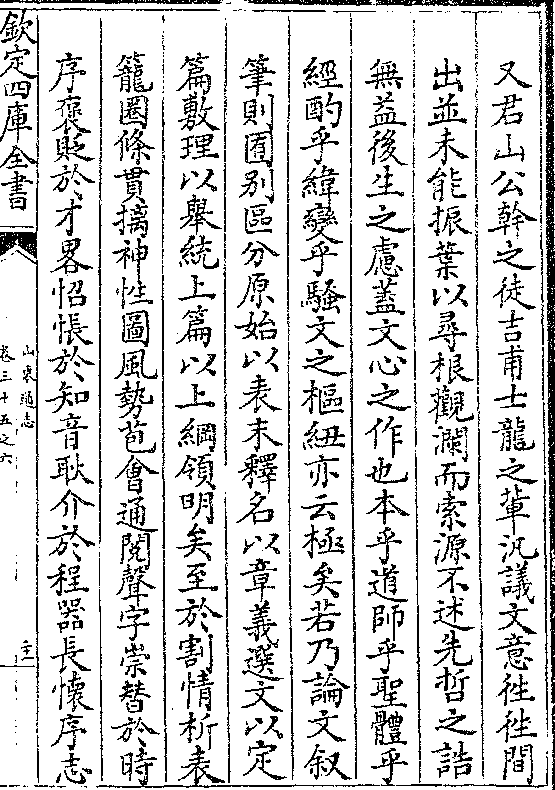 又君山公幹之徒吉甫士龍之輩汎議文意徃徃間
出並未能振葉以尋根觀瀾而索源不述先哲之誥
無益後生之慮蓋文心之作也本乎道師乎聖體乎
經酌乎緯變乎騷文之樞紐亦云極矣若乃論文叙
筆則囿别區分原始以表末釋名以章義選文以定
篇敷理以舉統上篇以上綱領明矣至於割情析表
籠圈條貫摛神性圖風勢苞會通閲聲字崇替於時
序褒貶於才畧怊悵於知音耿介於程器長懷序志
欽定四庫全書
山東通志
卷三十五之六